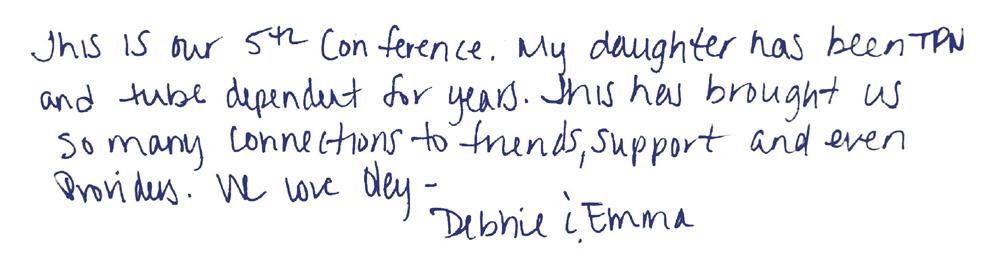 This is our 5th Conference. My daughter has been TPN
and tube dependent for years. This has brought us
so many connections to friends, support and even
Providers. We love Oley -
Debbie & Emma